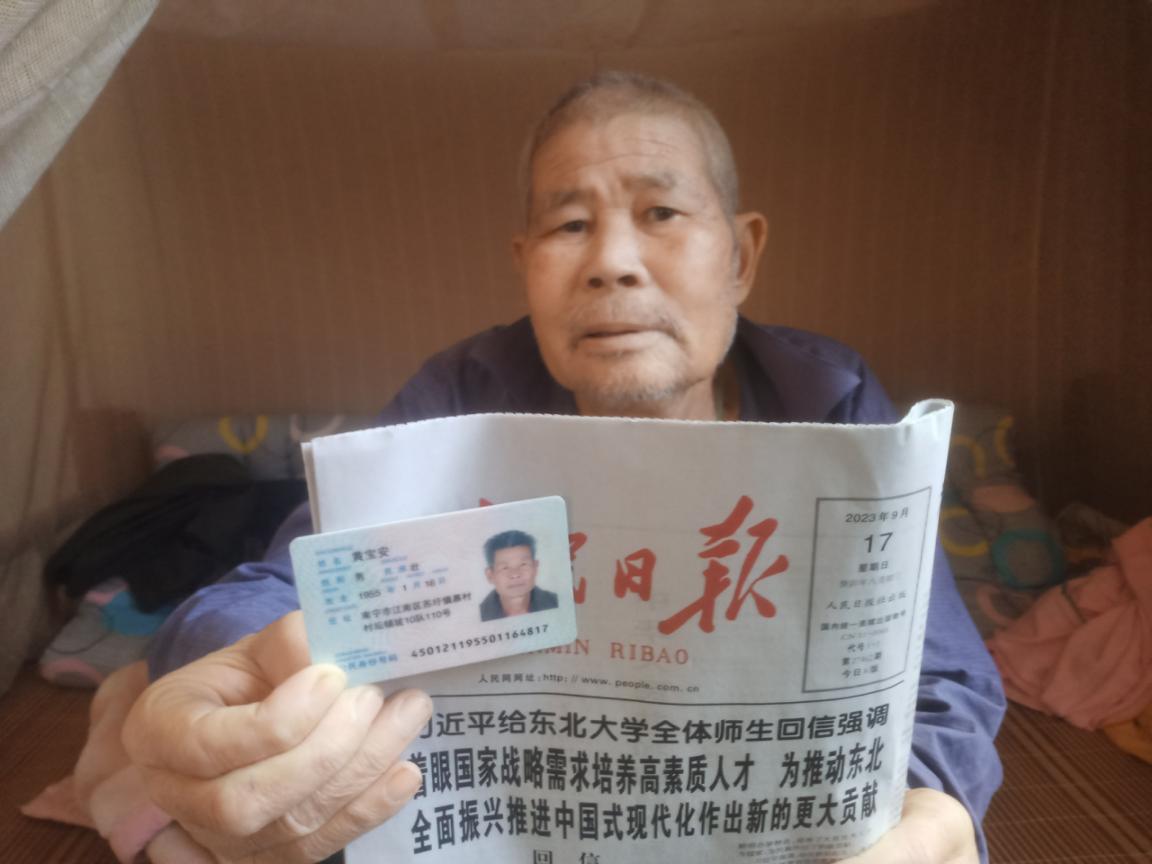 姓名 黄宝安
性别 男 民族 壮
出生 1955 年 1 月 16 日
住址 南宁市江南区苏圩镇慕村
10队110号
民身份号码 450121195501164817
民日报
MIN RIBAO
人民网网址:http://www.people.com.cn
2023年9月
17
星期日
人民日报社出版
国内统一连续出版物号
代号
习近平给东北大学全体师生回信强调
着眼国家战略需求培养高素质人才 为推动东北
全面振兴推进中国式现代化作出新的更大贡献
回 信